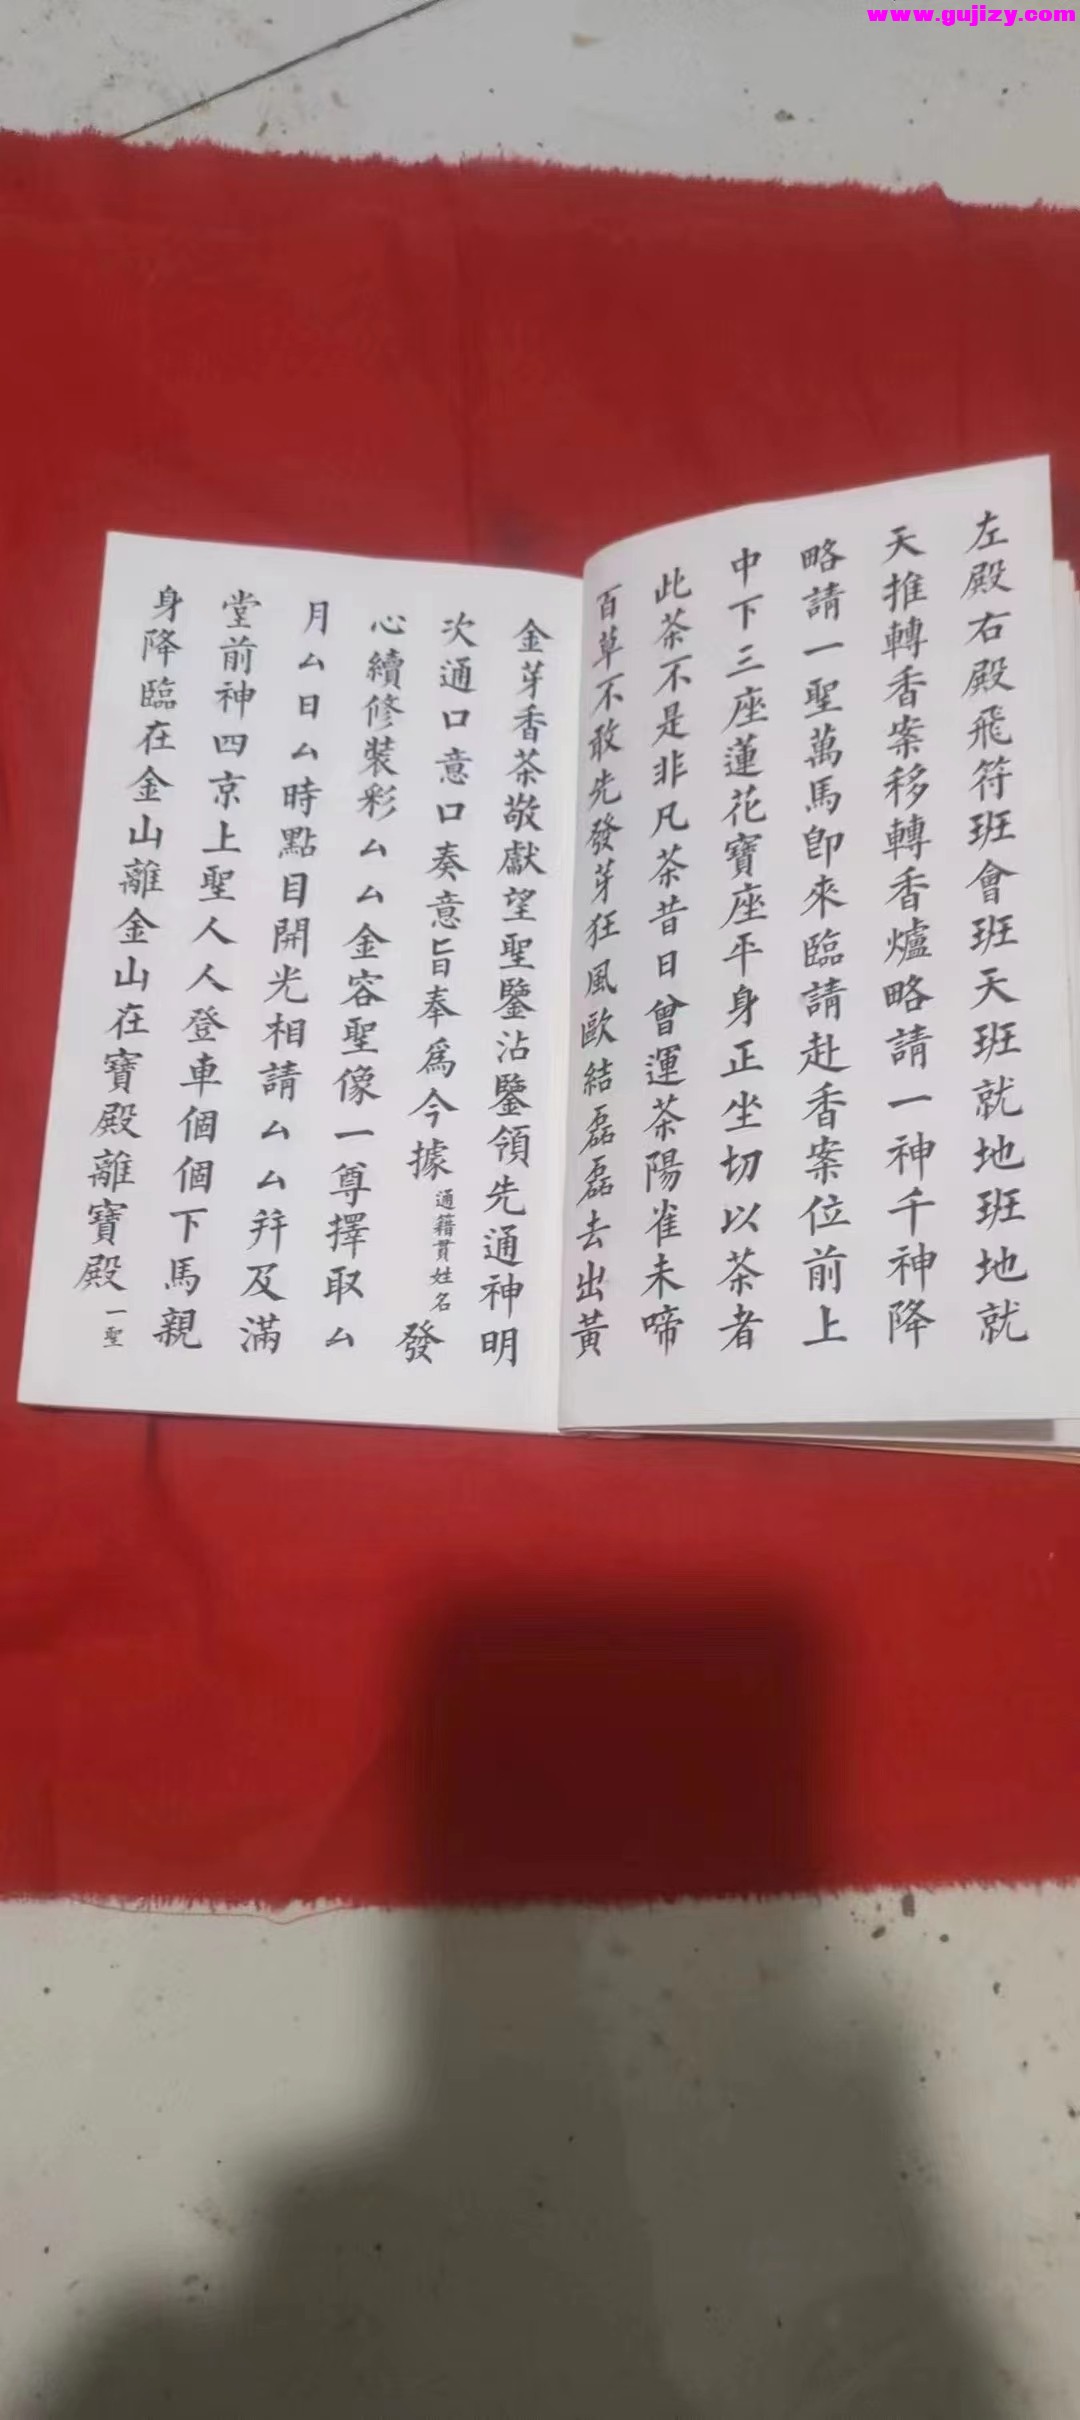 www.gujizy.com
左殿右殿飛符班會班天班就地班地就
天推轉香案移轉香爐略請一神千神降
略請一聖萬馬卽來臨請赴香案位前上
中下三座蓮花寶座平身正坐切以茶者
此茶不是非凡茶昔日曾運茶陽雀未啼
百草不敢先發芽狂風歐結磊磊去出黃
金芽香茶敬獻望聖鑒沾鑒領先通神明
次通口意口奏意旨奉爲今據通籍貫姓名發
心續修裝彩ムム金容聖像一尊擇取ム
月ム日ム時點目開光相請ムム幷及滿
堂前神四京上聖人人登車個個下馬親
身降臨在金山離金山在寶殿離寶殿一聖